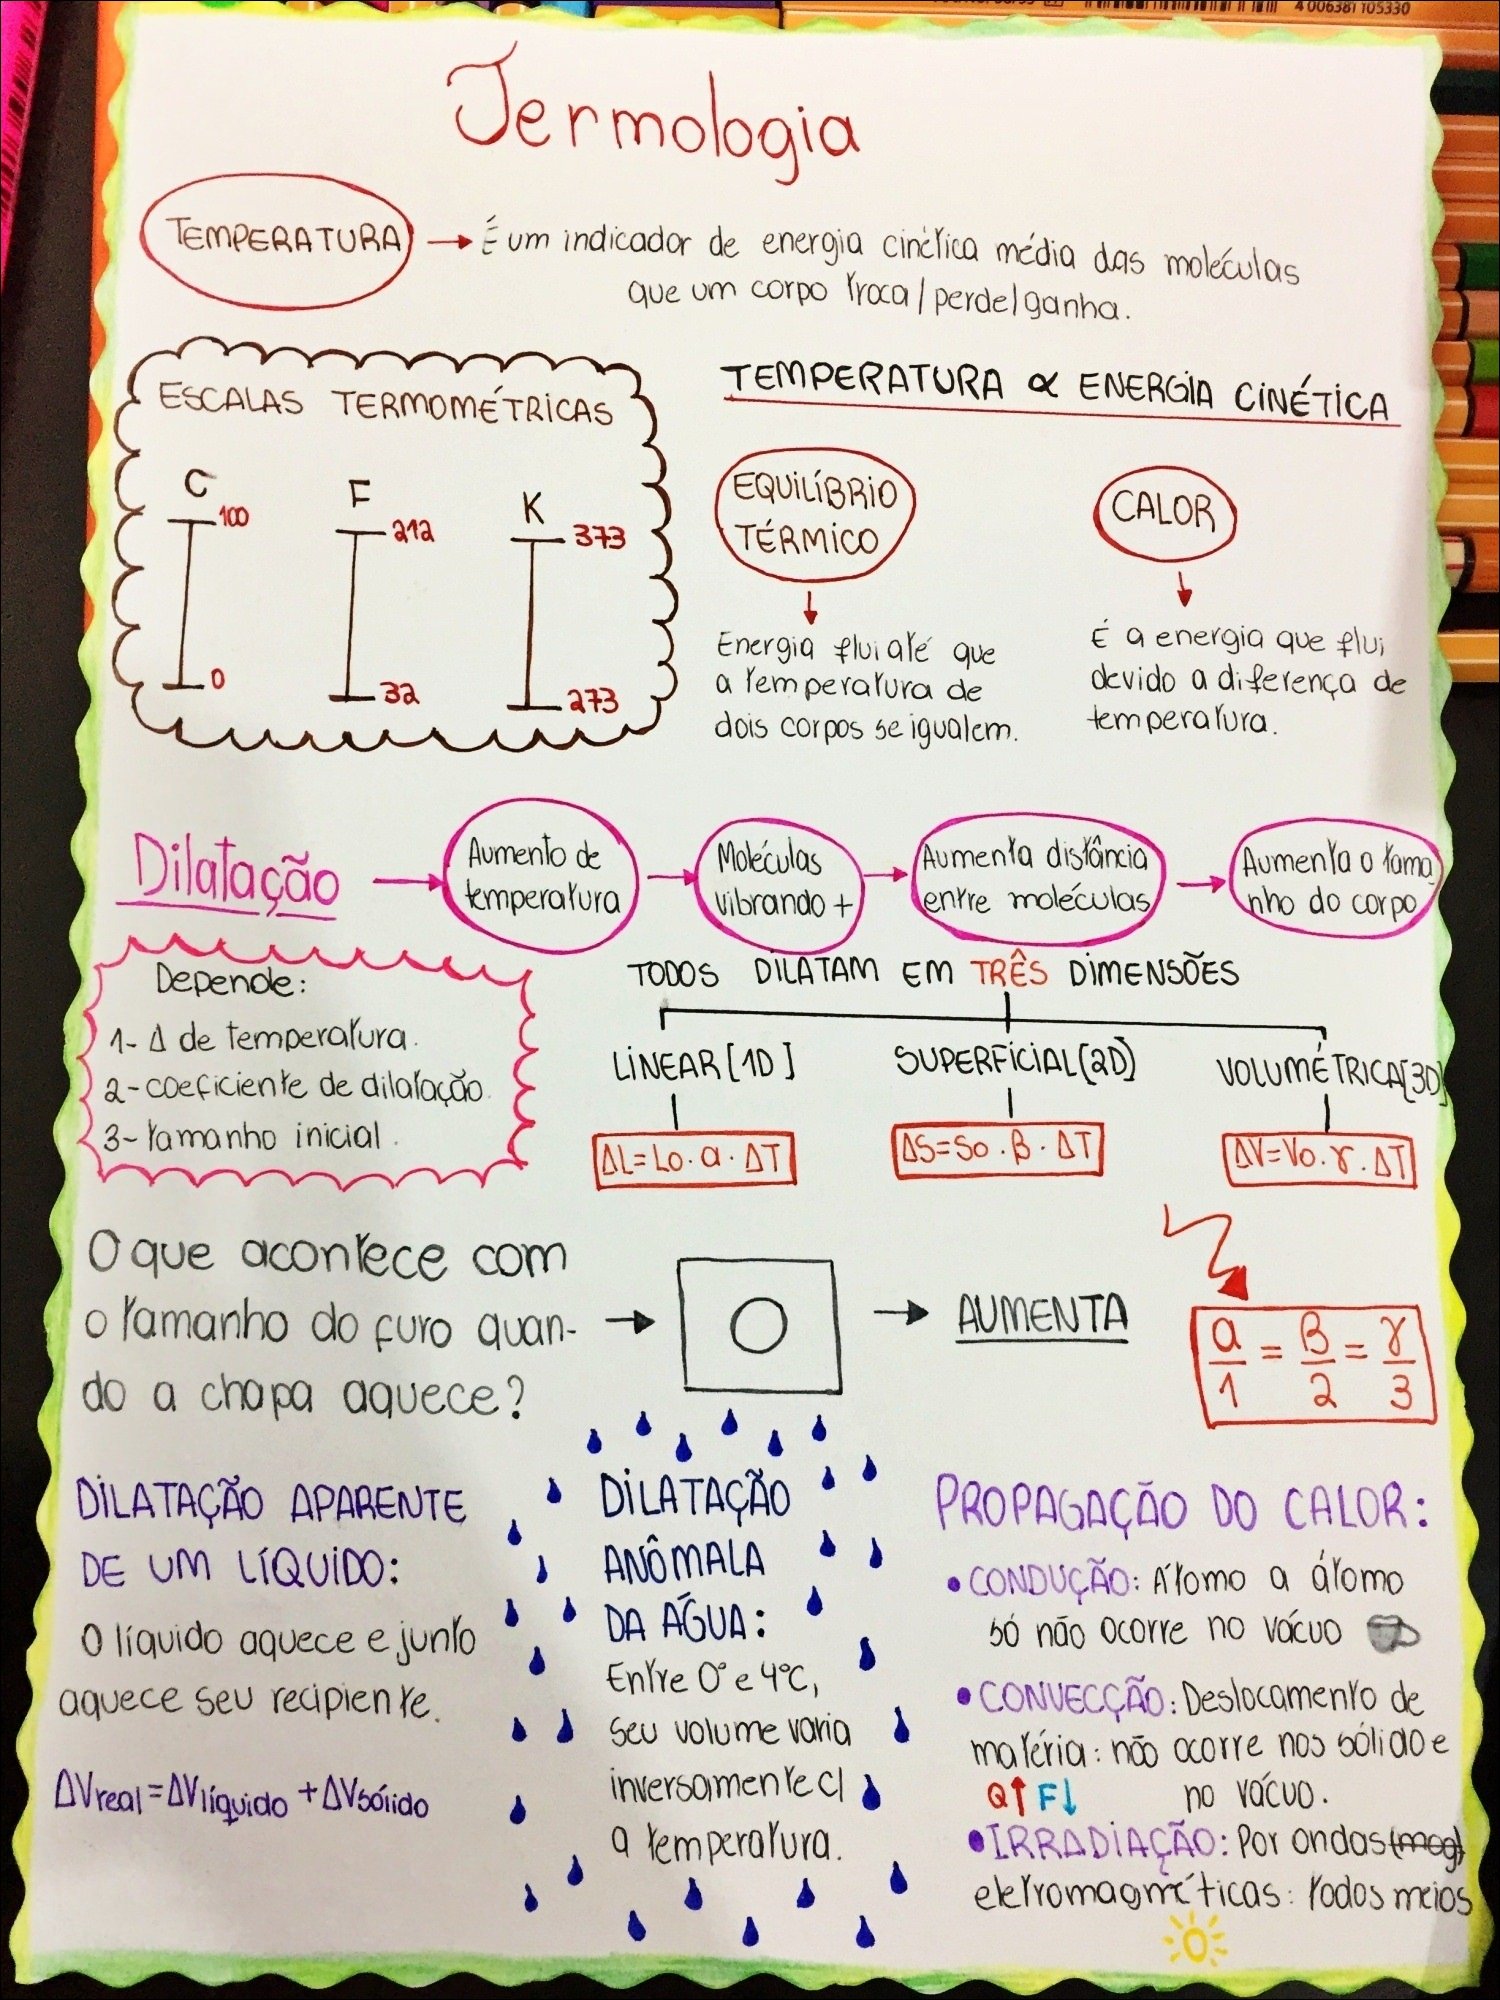 4 006381 105330
Termologia
TEMPERATURA → É um indicador de energia cinética média das moléculas
que um corpo troca/perde/ganha.
ESCALAS TERMOMÉTRICAS
C
100
0
F
212
32
K
373
273
TEMPERATURA ∝ ENERGIA CINÉTICA
EQUILÍBRIO
TÉRMICO
Energia flui até que
a temperatura de
dois corpos se igualem.
CALOR
É a energia que flui
devido a diferença de
temperatura.
Dilatação
Aumento de
temperatura
Moléculas
vibrando +
Aumenta distância
entre moléculas
Aumenta o tama
nho do corpo
Depende:
1- Δ de temperatura.
2- coeficiente de dilatação.
3- tamanho inicial.
TODOS DILATAM EM TRÊS DIMENSÕES
LINEAR [1D]
ΔL=Lo.α.ΔT
SUPERFICIAL [2D]
ΔS=So.β.ΔT
VOLUMÉTRICA [3D]
ΔV=Vo.γ.ΔT
O que acontece com
o tamanho do furo quan-
do a chapa aquece?
→ AUMENTA
α/1 = β/2 = γ/3
DILATAÇÃO APARENTE
DE UM LÍQUIDO:
O líquido aquece e junto
aquece seu recipiente.
ΔVreal=ΔVlíquido+ΔVsólido
DILATAÇÃO
ANÔMALA
DA ÁGUA:
Entre 0° e 4°C,
seu volume varia
inversamente c/
a temperatura.
PROPAGAÇÃO DO CALOR:
• CONDUÇÃO: Átomo a átomo
só não ocorre no vácuo
• CONVECÇÃO: Deslocamento de
matéria: não ocorre nos sólido e
Q↑ F↓ no vácuo.
• IRRADIAÇÃO: Por ondas (mag)
eletromagnéticas: todos meios